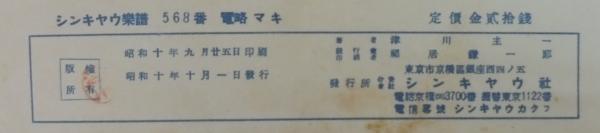 シンキヤウ樂譜 568番 電略マキ
定價金貳拾錢
昭和十年九月廿五日印刷
昭和十年十月一日發行
版權所有
著者 津川主一
印刷者 鎌一郎
東京市京橋區銀座西四ノ五
發行所 シンキヤウ社
電話京橋3700番 振替東京1122番
電信畧號 シンキヤウガクフ